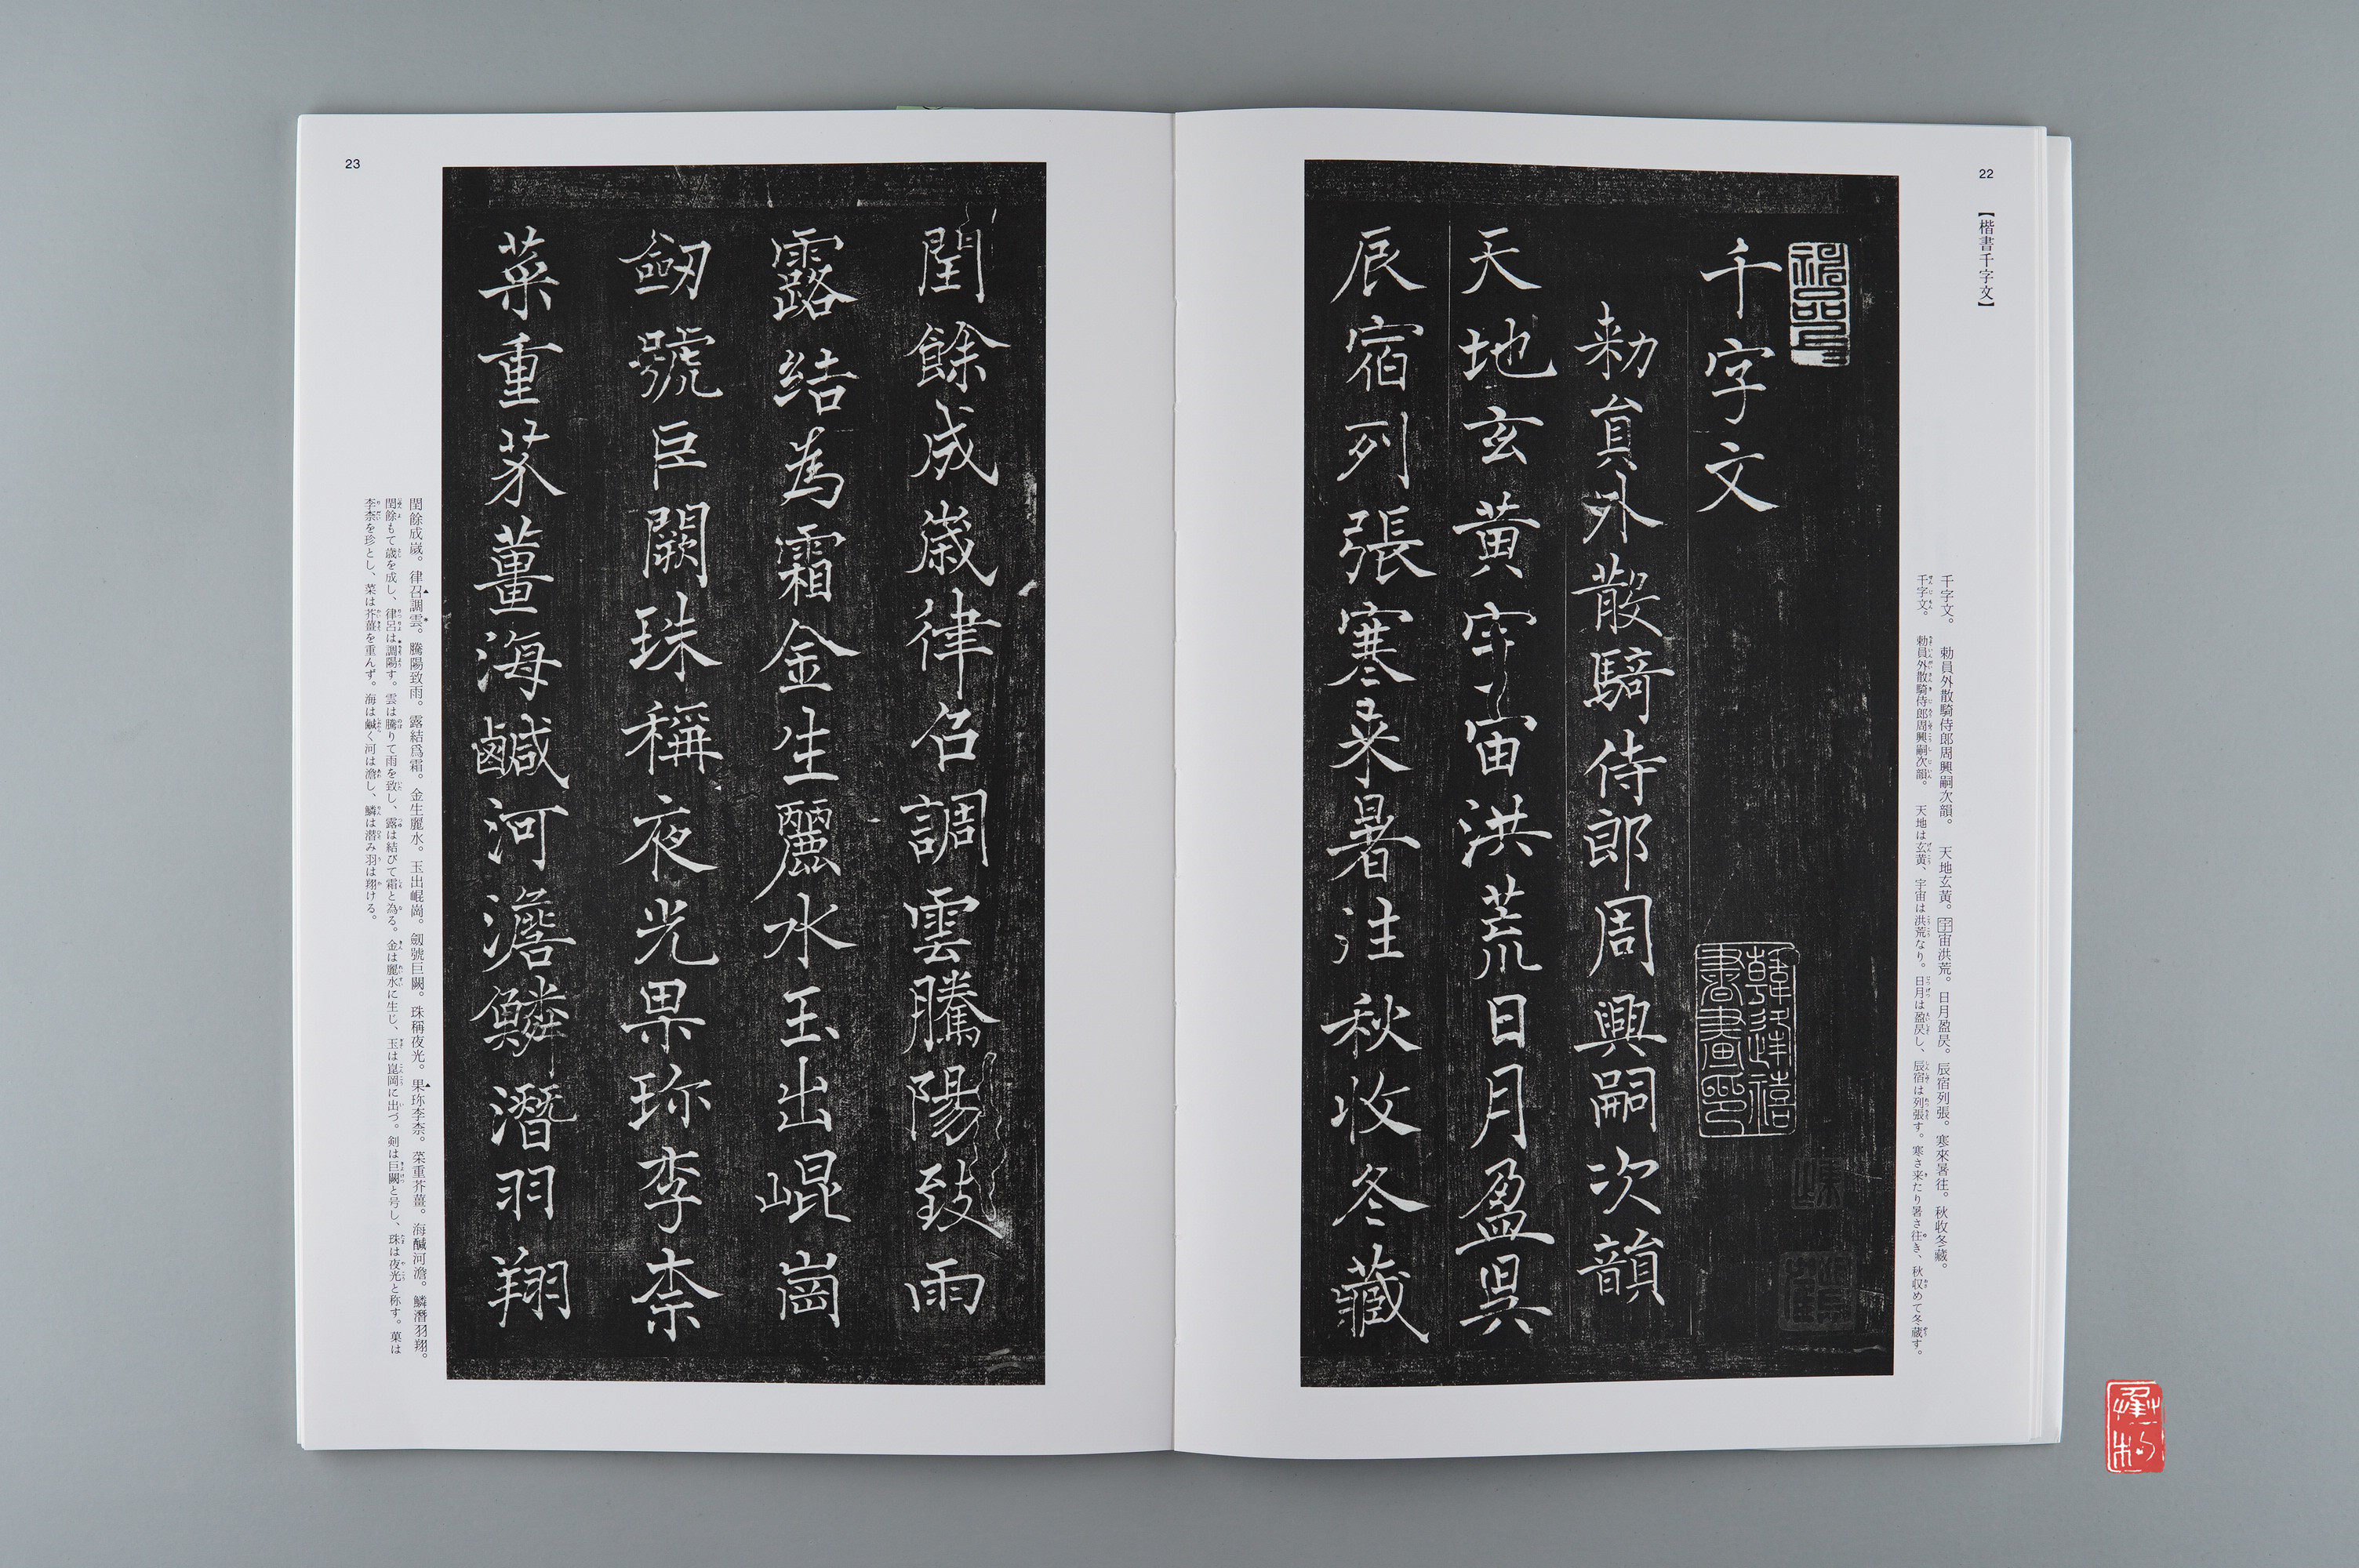 22
【楷書千字文】
千字文。　勅員外散騎侍郎周興嗣次韻。　天地玄黃。宇宙洪荒。日月盈昃。辰宿列張。寒來暑往。秋收冬藏。
千字文。　勅員外散騎侍郎周興嗣次韻。　天地は玄黄、宇宙は洪荒なり。日月は盈昃し、辰宿は列張す。寒さ来たり暑さ往き、秋収めて冬蔵す。
千字文
勑員外散騎侍郎周興嗣次韻
天地玄黃宇宙洪荒日月盈昃
辰宿列張寒来暑往秋收冬藏
韓逢禧書畫印
閏餘成歲律召調雲騰陽致雨
露結為霜金生麗水玉出崐崗
劒號巨闕珠稱夜光果珎李柰
菜重芥薑海鹹河澹鱗潛羽翔
閏餘成歲。律召調雲。騰陽致雨。露結爲霜。金生麗水。玉出崐崗。劒號巨闕。珠稱夜光。果珎李柰。菜重芥薑。海鹹河澹。鱗潛羽翔。
閏餘もて歳を成し、律呂は調陽す。雲は騰りて雨を致し、露は結びて霜と為る。金は麗水に生じ、玉は崑岡に出づ。剣は巨闕と号し、珠は夜光と称す。菓は
李柰を珍とし、菜は芥薑を重んず。海は鹹く河は澹し、鱗は潜み羽は翔ける。
23